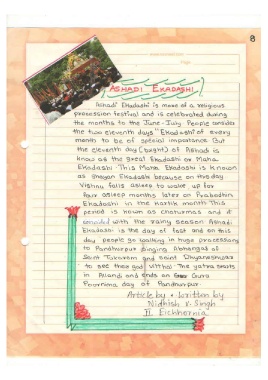 8
ASHADI EKADASHI
Ashadi Ekadashi is more of a religious
procession festival and is celebrated during
the months to the June-July. People consider
the two eleventh days "Ekadashi" of every
month to be of special importance. But
the eleventh day (bright) of Ashadi is
know as the great Ekadashi or Maha
Ekadashi. This Maha Ekadashi is known
as Shayan Ekadashi because on this day
Vishnu falls asleep to wake up for
four asleep months later on Prabodhini
Ekadashi in the Kartik month This
period is known as chaturmas and it
coincided with the rainy season Ashadi
Ekadashi is the day of fast and on this
day people go walking in huge processions
to Pandharpur singing Abhangas of
Saint Tukaram and saint Dhyaneshwar
to see their god vitthal. The yatra starts
in Alandi and ends on Guru
Poornima day of Pandharpur.
Article by & written by
Nidhish V. Singh
II. Eichhornia